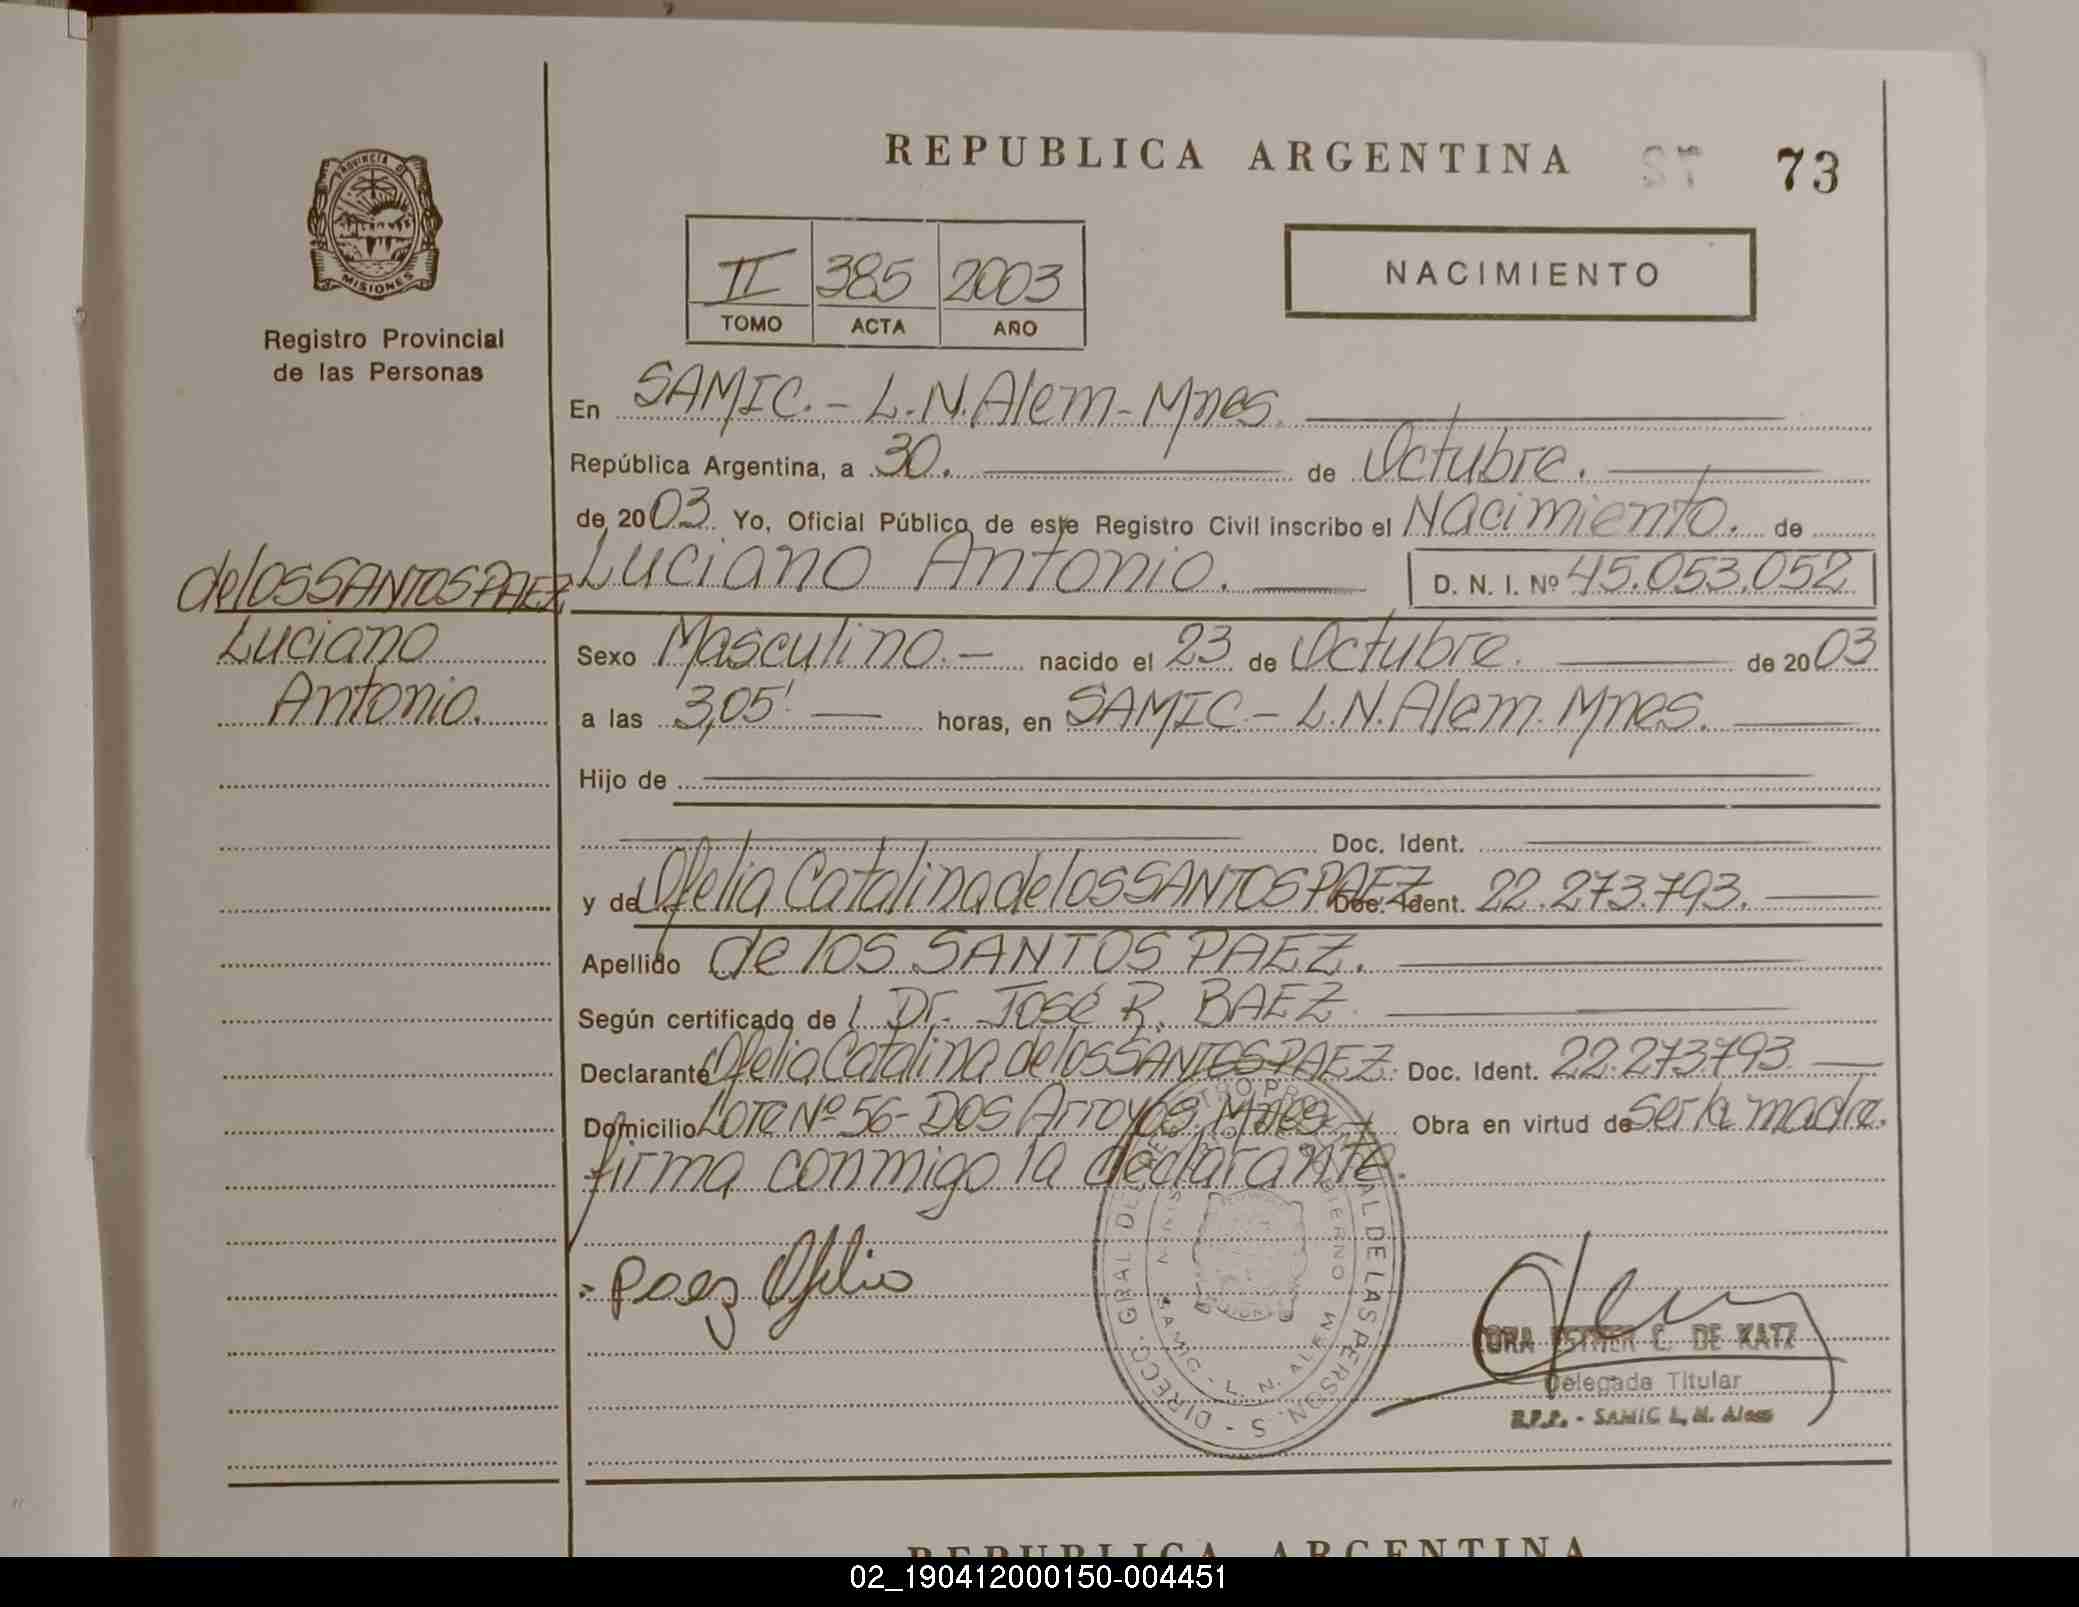 REPUBLICA ARGENTINA 73
PROVINCIA D
MISIONES
Registro Provincial
de las Personas
II 385 2003
TOMO ACTA AÑO
NACIMIENTO
En SAMIC.- L.N.Alem-Mnes.
República Argentina, a 30. de Octubre.
de 2003. Yo, Oficial Público de este Registro Civil inscribo el Nacimiento. de
Luciano Antonio. D. N. I. Nº 45.053.052
de los SANTOS PAEZ
Luciano
Antonio.
Sexo Masculino.- nacido el 23 de Octubre. de 2003
a las 3,05' horas, en SAMIC.- L.N.Alem. Mnes.
Hijo de
Doc. Ident.
y de Ofelia Catalina de los SANTOS PAEZ Doc. Ident. 22.273.793.
Apellido de los SANTOS PAEZ.
Según certificado de Dr. José R. BAEZ
Declarante Ofelia Catalina de los SANTOS PAEZ. Doc. Ident. 22.273793
Domicilio Lote Nº 56- DOS Arroyos. Mnes Obra en virtud de ser la madre.
firma conmigo la declarante.
Paez Ofelia
DE LAS PERSON
DIRECC. GRAL DE
SAMIC - L. N. ALEM
ESTHER C. DE KATZ
Delegada Titular
R.P.P. - SAMIC L. N. Alem
REPUBLICA ARGENTINA
02_190412000150-004451